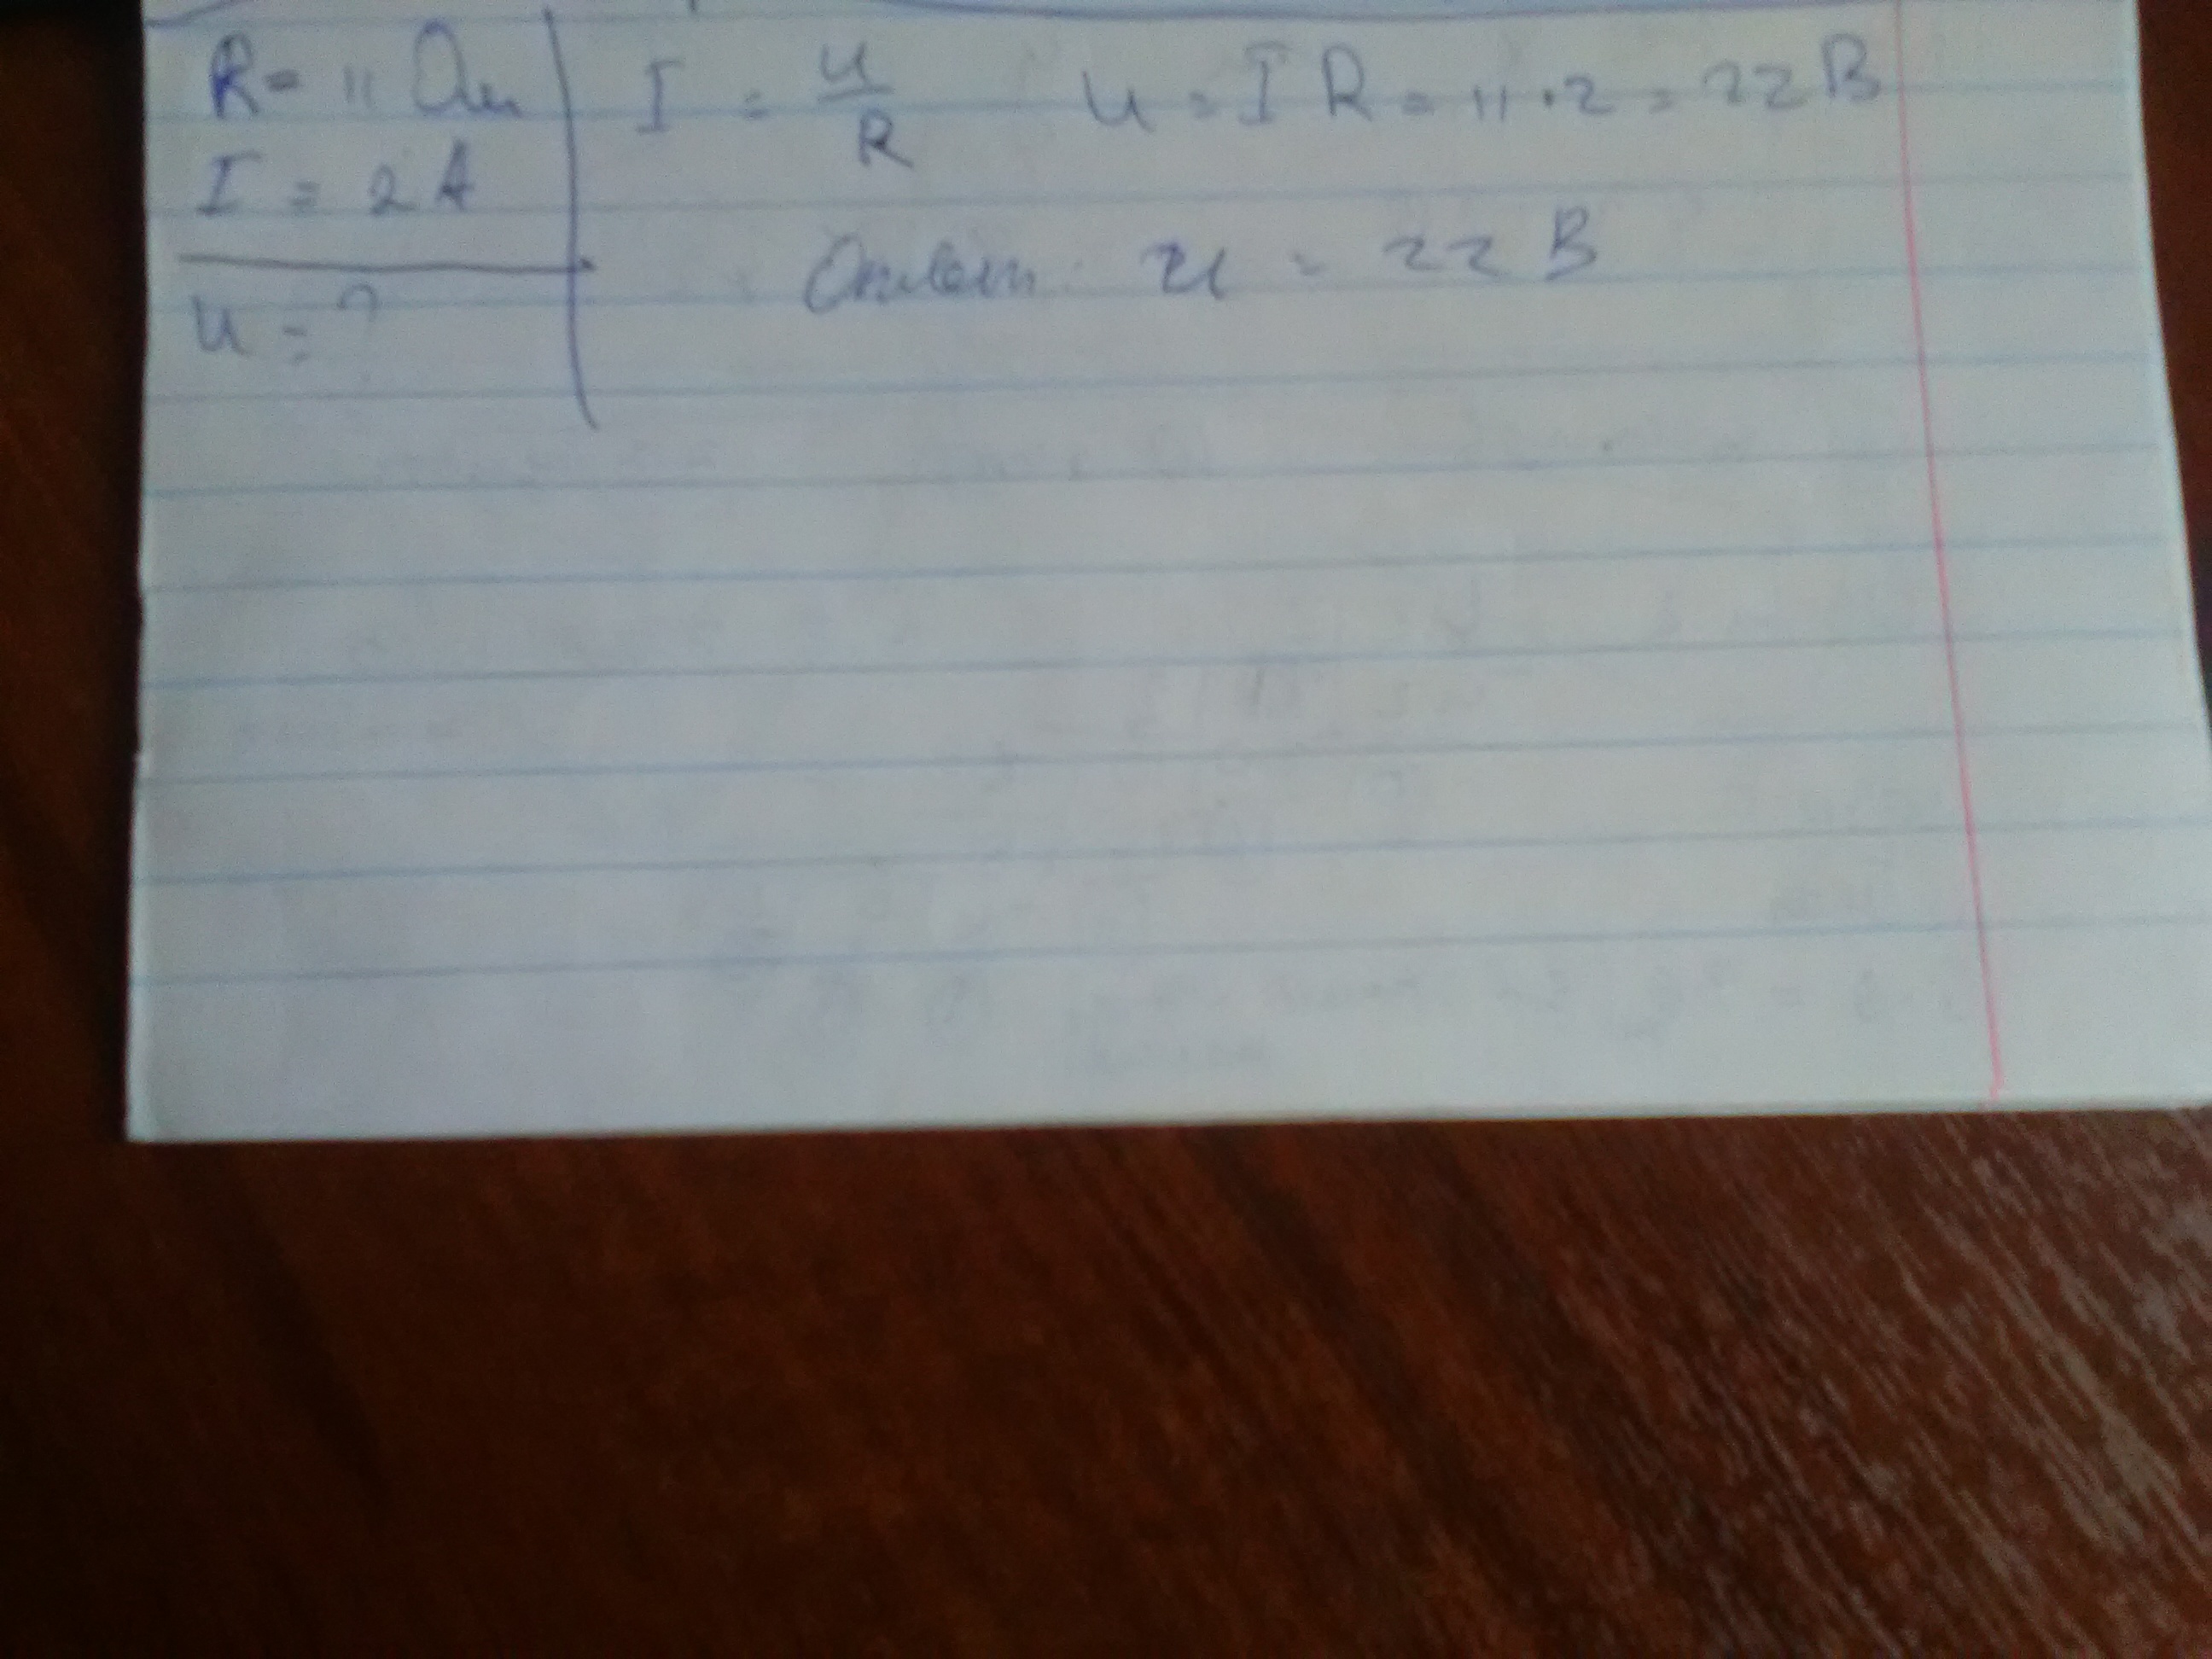 R = 11 Ом
I = 2 А
U = ?
I = U/R U = I R = 11 · 2 = 22 В
Ответ: U = 22 В